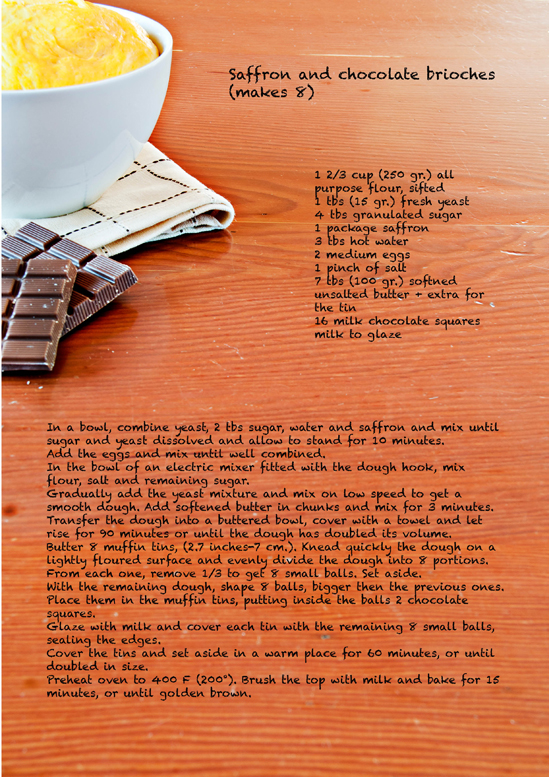 Saffron and chocolate brioches
(makes 8)
1 2/3 cup (250 gr.) all
purpose flour, sifted
1 tbs (15 gr.) fresh yeast
4 tbs granulated sugar
1 package saffron
3 tbs hot water
2 medium eggs
1 pinch of salt
7 tbs (100 gr.) softned
unsalted butter + extra for
the tin
16 milk chocolate squares
milk to glaze
In a bowl, combine yeast, 2 tbs sugar, water and saffron and mix until
sugar and yeast dissolved and allow to stand for 10 minutes.
Add the eggs and mix until well combined.
In the bowl of an electric mixer fitted with the dough hook, mix
flour, salt and remaining sugar.
Gradually add the yeast mixture and mix on low speed to get a
smooth dough. Add softened butter in chunks and mix for 3 minutes.
Transfer the dough into a buttered bowl, cover with a towel and let
rise for 90 minutes or until the dough has doubled its volume.
Butter 8 muffin tins, (2.7 inches-7 cm.). Knead quickly the dough on a
lightly floured surface and evenly divide the dough into 8 portions.
From each one, remove 1/3 to get 8 small balls. Set aside.
With the remaining dough, shape 8 balls, bigger then the previous ones.
Place them in the muffin tins, putting inside the balls 2 chocolate
squares.
Glaze with milk and cover each tin with the remaining 8 small balls,
sealing the edges.
Cover the tins and set aside in a warm place for 60 minutes, or until
doubled in size.
Preheat oven to 400 F (200°). Brush the top with milk and bake for 15
minutes, or until golden brown.